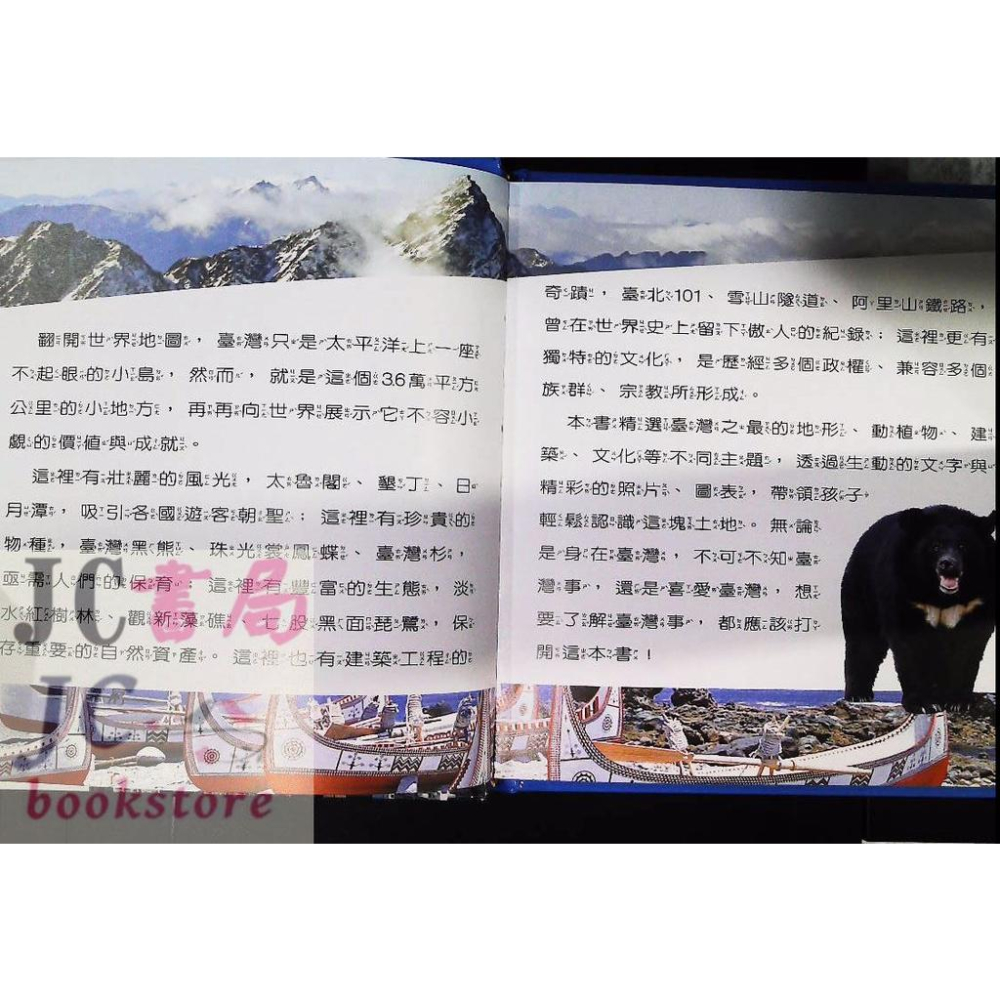 翻開世界地圖，臺灣只是太平洋上一座
不起眼的小島，然而，就是這個3.6萬平方
公里的小地方，再再向世界展示它不容小
覷的價值與成就。
這裡有壯麗的風光，太魯閣、墾丁、日
月潭，吸引各國遊客朝聖；這裡有珍貴的
物種，臺灣黑熊、珠光裳鳳蝶、臺灣杉，
亟需人們的保育；這裡有豐富的生態，淡
水紅樹林、觀新藻礁、七股黑面琵鷺，保
存重要的自然資產。這裡也有建築工程的
奇蹟，臺北101、雪山隧道、阿里山鐵路，
曾在世界史上留下傲人的紀錄；這裡更有
獨特的文化，是歷經多個政權、兼容多個
族群、宗教所形成。
本書精選臺灣之最的地形、動植物、建
築、文化等不同主題，透過生動的文字與
精彩的照片、圖表，帶領孩子
輕鬆認識這塊土地。無論
是身在臺灣，不可不知臺
灣事，還是喜愛臺灣，想
要了解臺灣事，都應該打
開這本書！
JC書局
JC
bookstore